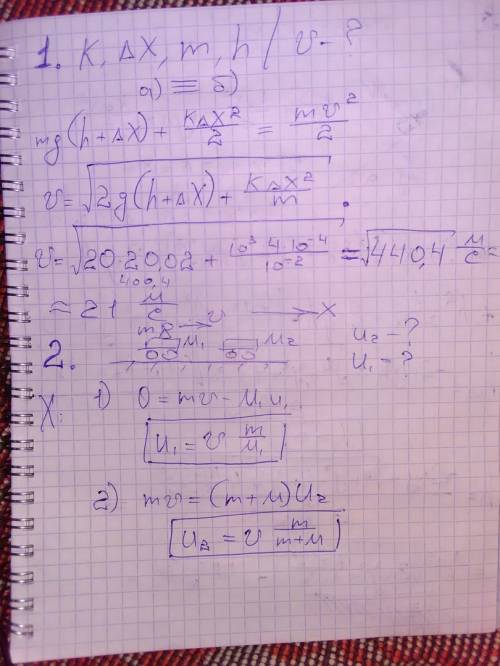 1. K, ΔX, m, h / v - ?
а) ≡ б)
mg(h+ΔX) + KΔX²/2 = mv²/2
v = √(2g(h+ΔX) + KΔX²/m).
v = √(20·20,02 + 10³·4·10⁻⁴/10⁻²) = √440,4 м/с =
400,4
≈ 21 м/с
m v X
2. M₁ M₂ u₂ - ?
u₁ - ?
X: 1) 0 = mv - M₁u₁
u₁ = v m/M₁
2) mv = (m+M)u₂
u₂ = v m/(m+M)